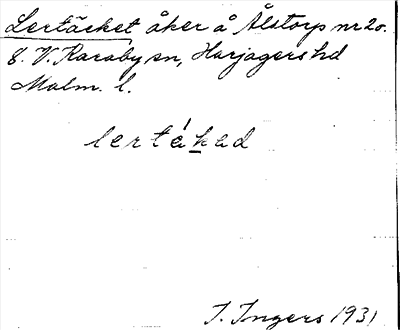 Lertäcket åker å Ålstorp nr 20.
8. V. Karaby sn, Harjagers hd
Malm. l.
lertákad
I. Ingers 1931